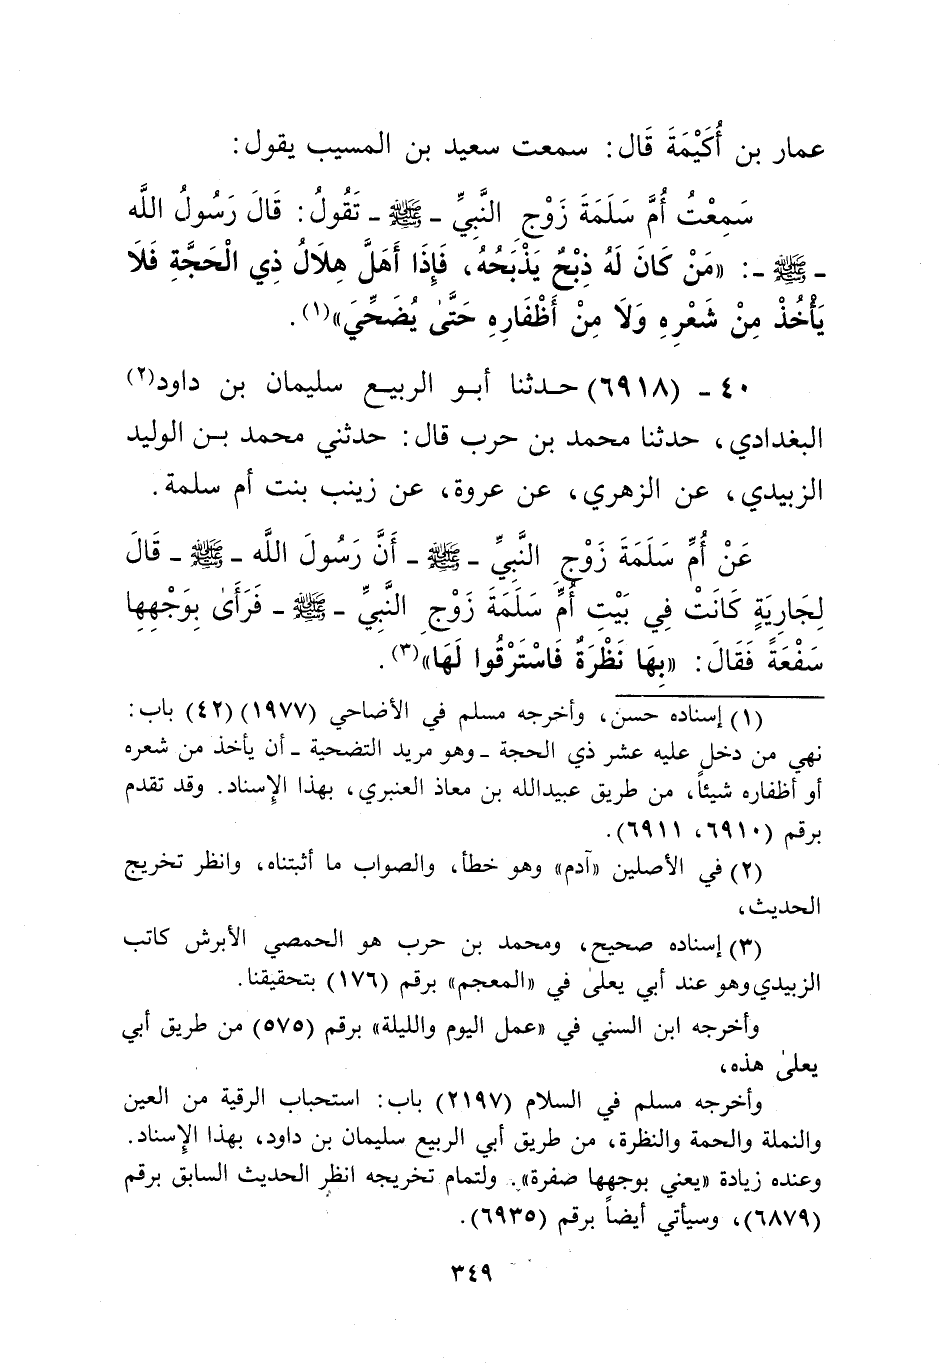 عمار بن أُكَيْمَةَ قَال: سمعت سعيد بن المسيب يقول:
سَمِعْتُ أُمَّ سَلَمَةَ زَوْجِ النَّبِيِّ ـ ﷺ ـ تَقُولُ: قَالَ رَسُولُ اللَّه
ـ ﷺ ـ: «مَنْ كَانَ لَهُ ذِبْحٌ يَذْبَحُهُ، فَإِذَا أَهَلَّ هِلَالُ ذِي الْحَجَّةِ فَلَا
يَأْخُذْ مِنْ شَعْرِهِ وَلَا مِنْ أَظْفَارِهِ حَتَّىٰ يُضَحِّيَ»(١).
٤٠ ـ (٦٩١٨) حـدثنا أبـو الربيـع سليمان بن داود(٢)
البغدادي، حدثنا محمد بن حرب قال: حدثني محمد بـن الوليد
الزبيدي، عن الزهري، عن عروة، عن زينب بنت أم سلمة.
عَنْ أُمِّ سَلَمَةَ زَوْجِ النَّبِيِّ ـ ﷺ ـ أَنَّ رَسُولَ اللَّه ـ ﷺ ـ قَالَ
لِجَارِيَةٍ كَانَتْ فِي بَيْتِ أُمِّ سَلَمَةَ زَوْجِ النَّبِيِّ ـ ﷺ ـ فَرَأَىٰ بِوَجْهِهِا
سَفْعَةً فَقَالَ: «بِهَا نَظْرَةٌ فَاسْتَرْقُوا لَهَا»(٣).
(١) إسناده حسن، وأخرجه مسلم في الأضاحي (١٩٧٧) (٤٢) باب:
نهي من دخل عليه عشر ذي الحجة ـ وهو مريد التضحية ـ أن يأخذ من شعره
أو أظفاره شيئاً، من طريق عبيدالله بن معاذ العنبري، بهذا الإسناد. وقد تقدم
برقم (٦٩١٠، ٦٩١١).
(٢) في الأصلين «آدم» وهو خطأ، والصواب ما أثبتناه، وانظر تخريج
الحديث،
(٣) إسناده صحيح، ومحمد بن حرب هو الحمصي الأبرش كاتب
الزبيدي وهو عند أبي يعلىٰ في «المعجم» برقم (١٧٦) بتحقيقنا.
وأخرجه ابن السني في «عمل اليوم والليلة» برقم (٥٧٥) من طريق أبي
يعلىٰ هذه،
وأخرجه مسلم في السلام (٢١٩٧) باب: استحباب الرقية من العين
والنملة والحمة والنظرة، من طريق أبي الربيع سليمان بن داود، بهذا الإسناد.
وعنده زيادة «يعني بوجهها صفرة». ولتمام تخريجه انظر الحديث السابق برقم
(٦٨٧٩)، وسيأتي أيضاً برقم (٦٩٣٥).
٣٤٩